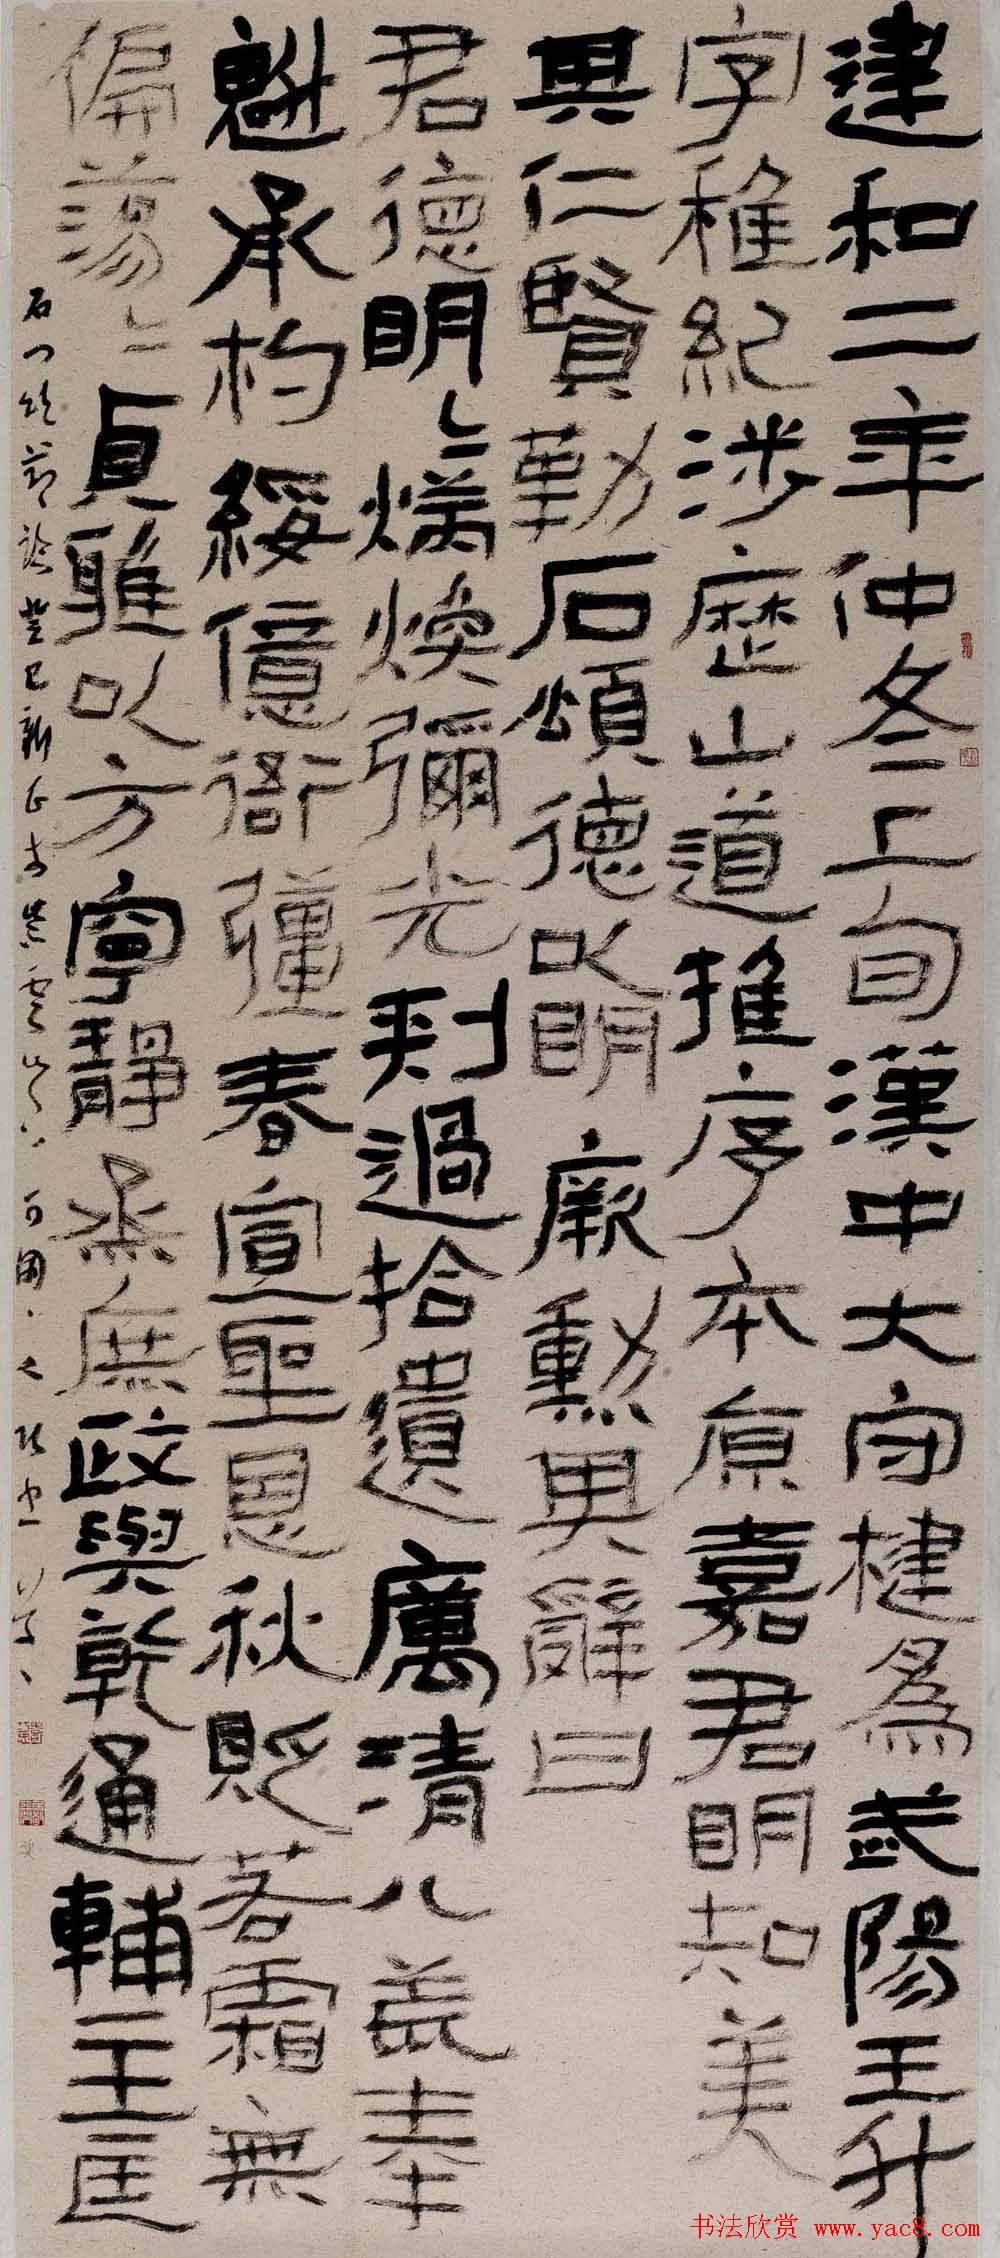 建和二年仲冬上旬漢中大守楗為武陽王升
字稚紀涉歷山道推序本原嘉君明知美
其仁賢勒石頌德以明厥勳其辭曰
君德明〻炳煥彌光刺過拾遺厲清八荒奉
魁承杓綏億衙彊春宣聖恩秋貶若霜無
偏蕩〻貞雅以方寧靜烝庶政與乾通輔主匡
石门頌節臨癸巳新正於
书法欣赏 www.yac8.com